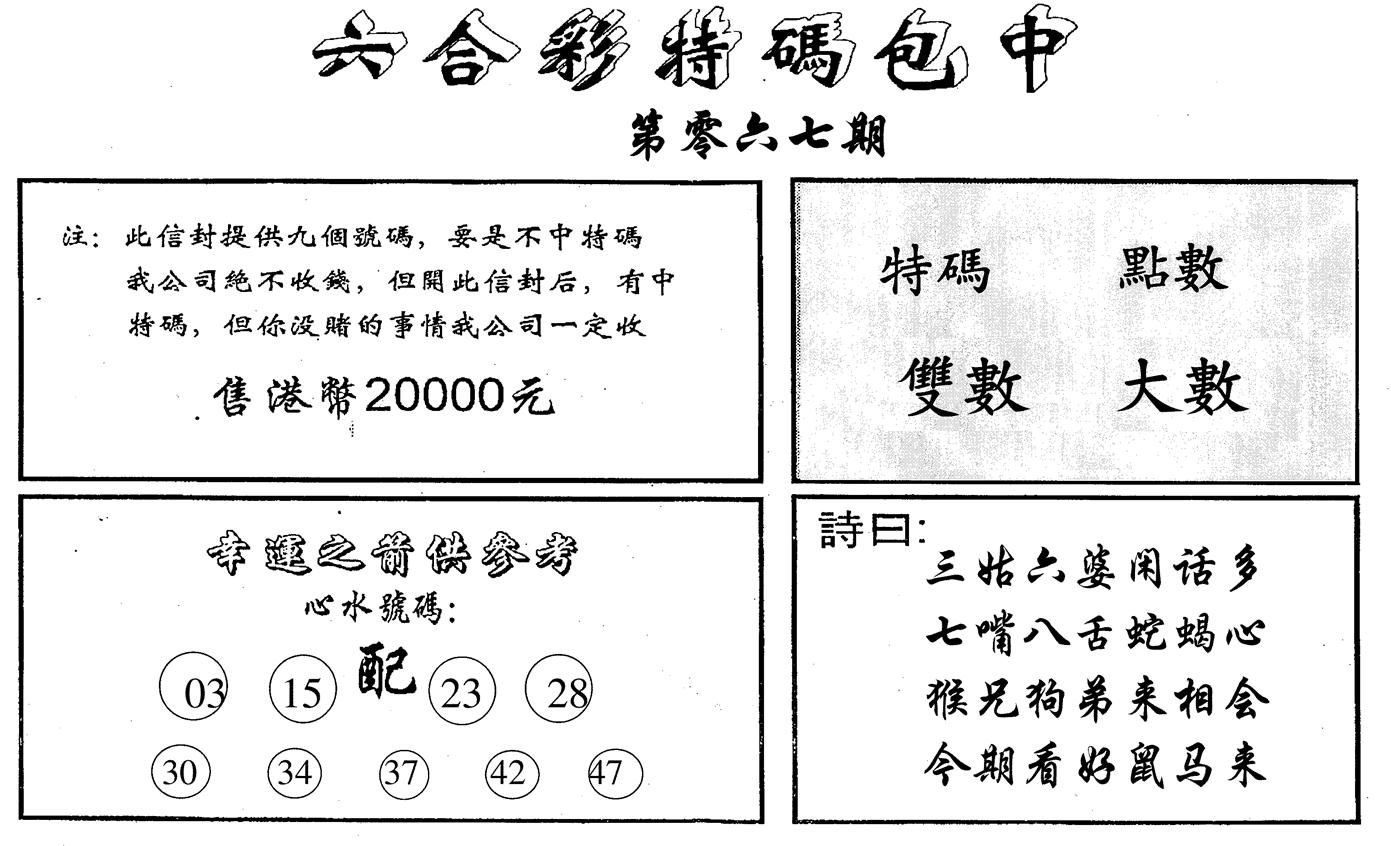 六合彩特碼包中
第零六七期
注：此信封提供九個號碼，要是不中特碼
我公司絕不收錢，但開此信封后，有中
特碼，但你没賭的事情我公司一定收
售港幣20000元
特碼 點數
雙數 大數
幸運之箭供參考
心水號碼：
03 15 配 23 28
30 34 37 42 47
詩曰：
三姑六婆闲话多
七嘴八舌蛇蝎心
猴兄狗弟来相会
今期看好鼠马来